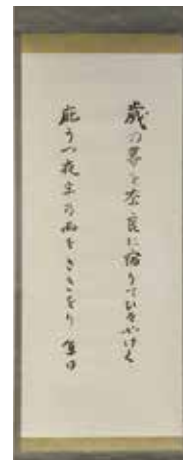 歳の暮を奈良に宿りてひそやけく
庇うつ夜半の雨をききをり